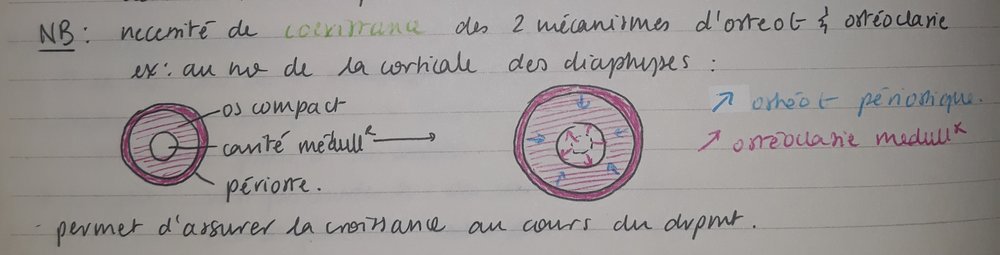 NB : necessité de coexistance des 2 mécanismes d'osteo t & ostéoclasie
ex : au nv de la corticale des diaphyses :
os compact
cavité médull^R
périoste.
↗ ostéo t périostique.
↗ ostéoclasie medull^x
- permet d'assurer la croissance au cours du dvpmt.